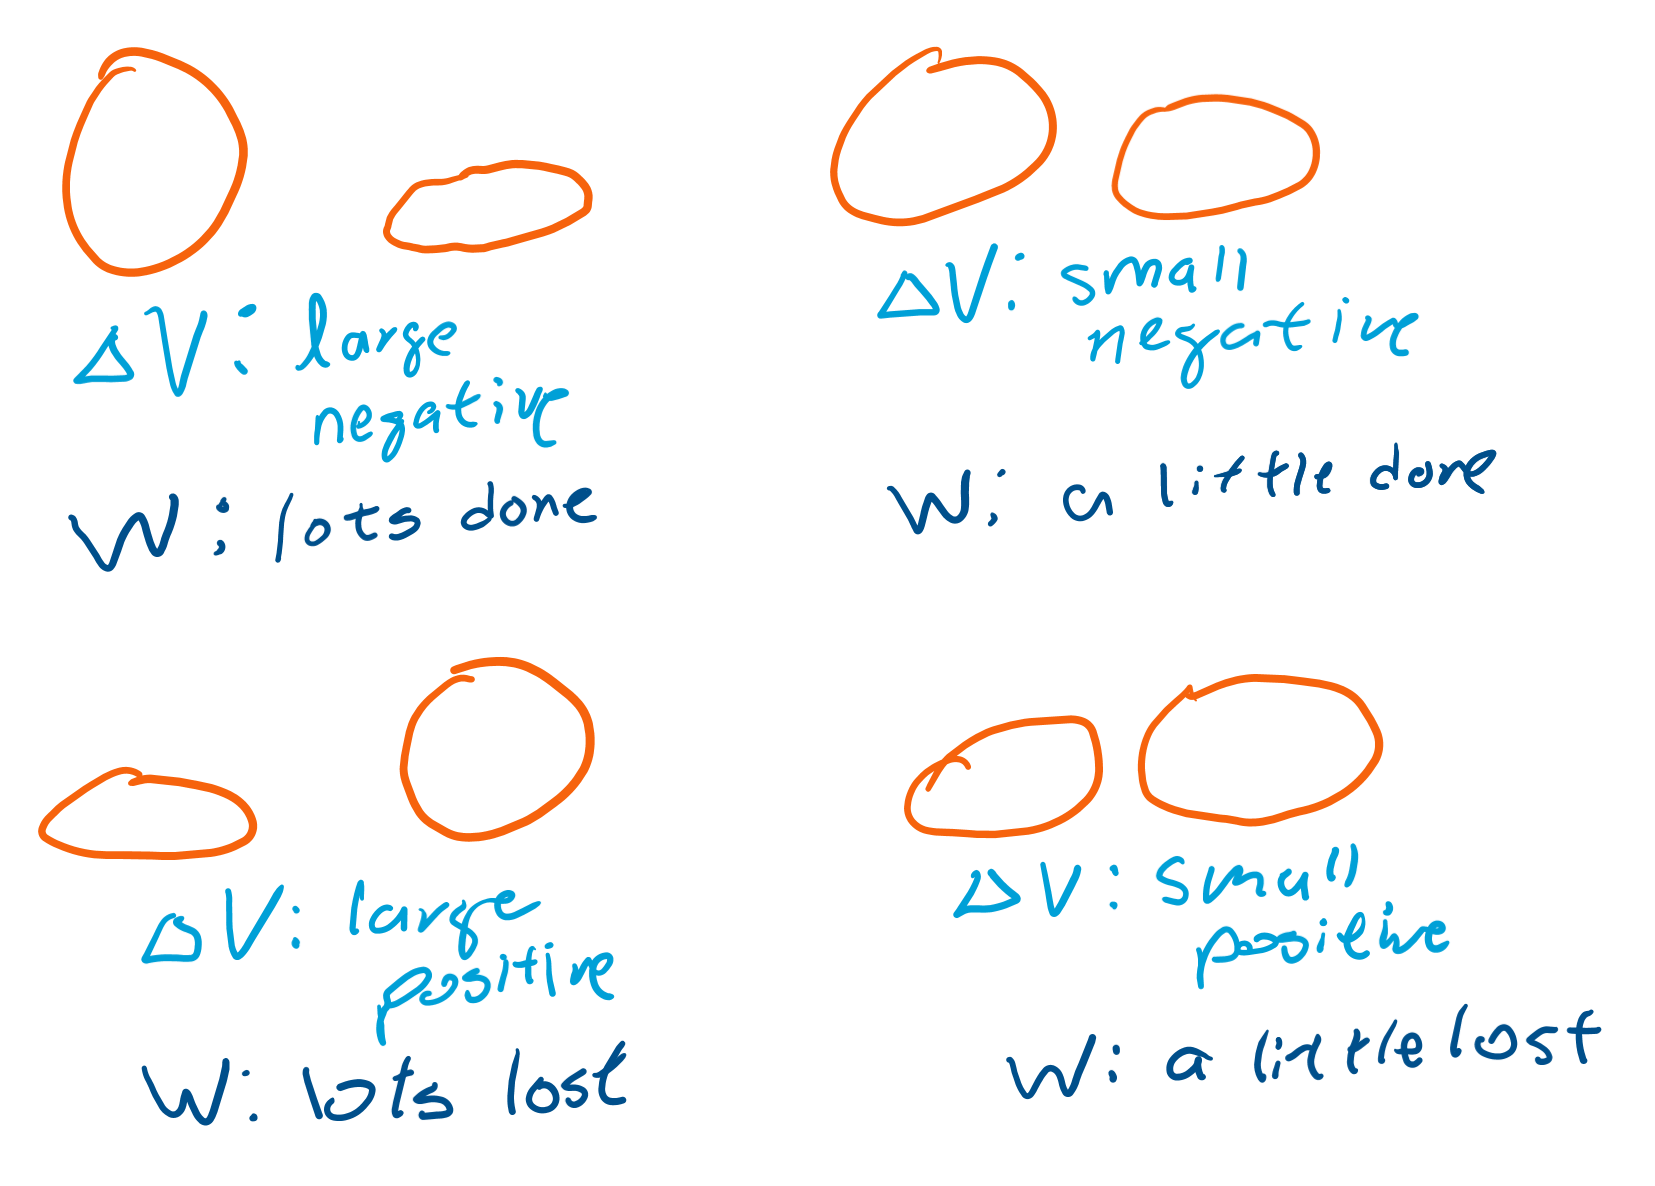 ΔV: large
negative
W: lots done
ΔV: small
negative
W: a little done
ΔV: large
positive
W: lots lost
ΔV: small
positive
W: a little lost